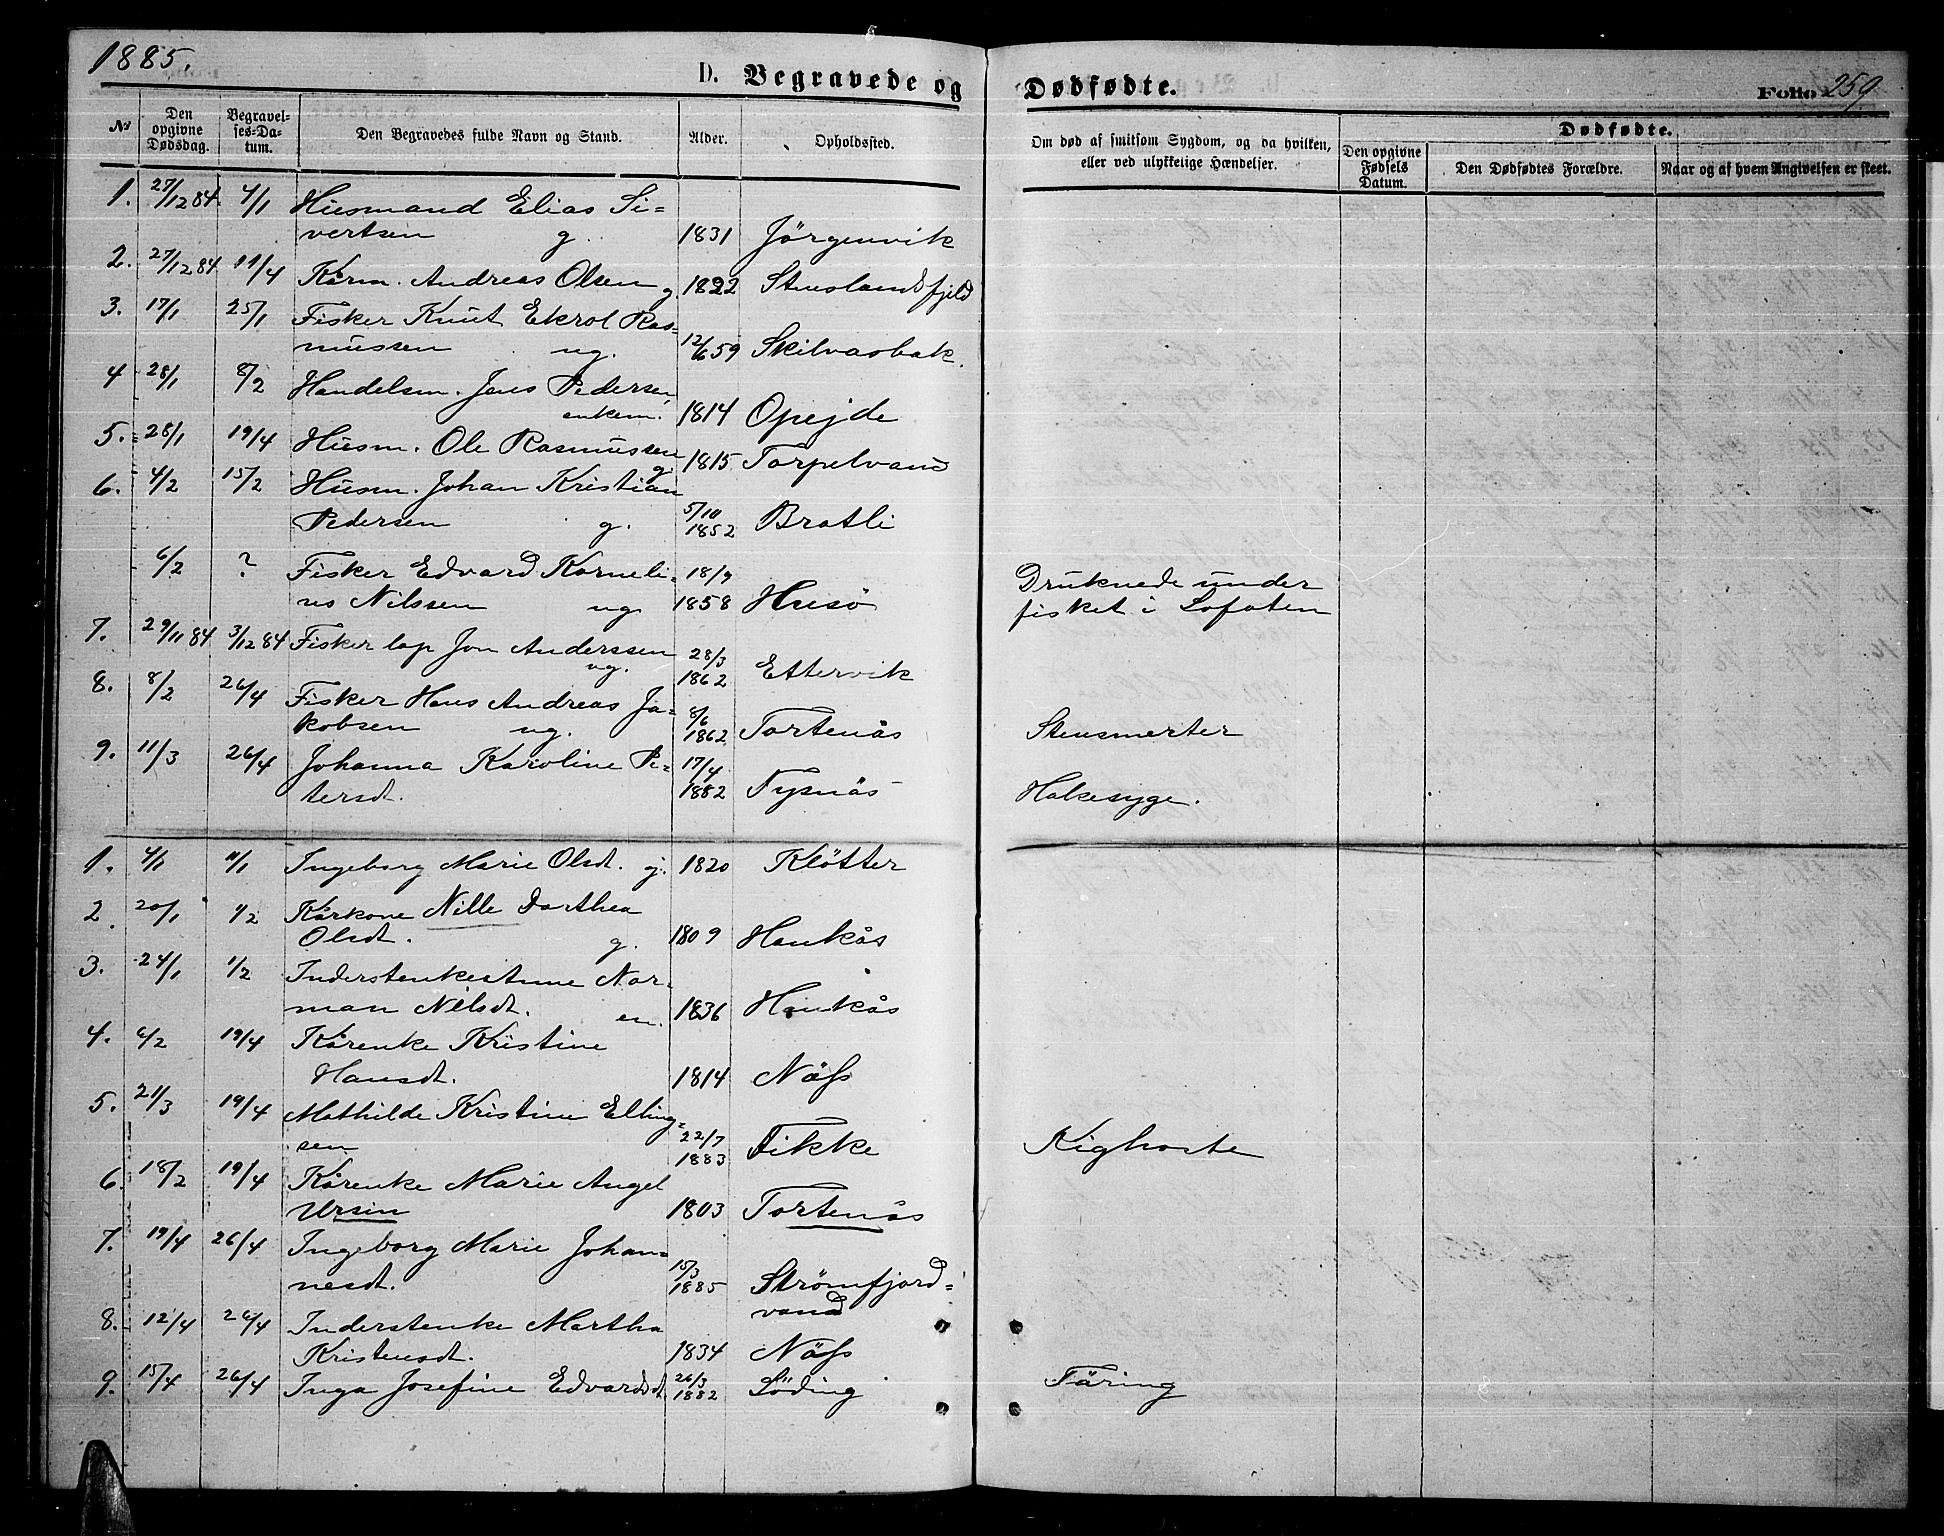 1885.
D. Begravede og Dødfødte.
Folio 259
No
Den opgivne Dødsdag.
Begravelses-Datum.
Den Begravedes fulde Navn og Stand.
Alder.
Opholdssted.
Om død af smitsom Sygdom, og da hvilken, eller ved ulykkelige Hændelser.
Dødfødte.
Den opgivne Fødsels Datum.
Den Dødfødtes Forældre.
Naar og af hvem Angivelsen er skeet.
1. 27/12 84 4/1 Husmand Elias Si=
vertsen g. 1831 Jörgenvik
2. 27/12 84 19/4 Kårm. Andreas Olsen g. 1822 Stenslandsfjeld
3. 17/1 25/1 Fisker Knut Ekrol Ras=
mussen ug. 12/6 59 Skilvasbak
4 28/1 8/2 Handelsm. Jens Pedersen,
enkem. 1814 Opejde
5. 28/1 19/4 Husm. Ole Rasmussen g. 1815 Torpelvand
6. 4/2 15/2 Husm. Johan Kristian
Pedersen g. 5/10 1852 Bratli
6/2 ? Fisker Edvard Korneli=
us Nilssen ug. 18/9 1858 Husö Druknede under
fisket i Lofoten
7. 29/11 84 3/12 84 Fisker lap Jon Anderssen
ug. 28/3 1862 Ettervik
8. 8/2 26/4 Fisker Hans Andreas Ja=
kobsen ug. 8/6 1862 Tortenås Stensmerter
9. 11/3 26/4 Johanna Karoline Pe=
tersdt. 17/4 1882 Nysnäs Halsesyge.
1. 4/1 11/1 Ingeborg Marie Olsdt. g. 1820 Klötter
2. 20/1 1/2 Kårkone Nille Dorthea
Olsdt. g. 1809 Haukås
3. 24/1 1/2 Inderstenke Anne Nor=
man Nilsdt. en. 1836 Haukås
4. 6/2 19/4 Kårenke Kristine
Hansdt. 1814 Näss
5. 21/3 19/4 Mathilde Kristine Elling=
sen 22/7 1883 Fikke Kighoste
6. 18/2 19/4 Kårenke Marie Angel
Ursin 1803 Tortenås
7. 19/4 26/4 Ingeborg Marie Johan=
nesdt. 15/3 1885 Strømfjord=
vand
8. 12/4 26/4 Inderstenke Martha
Kristensdt. 1834 Näss
9. 15/4 26/4 Inga Josefine Edvardsdt. 26/3 1882 Löding Täring